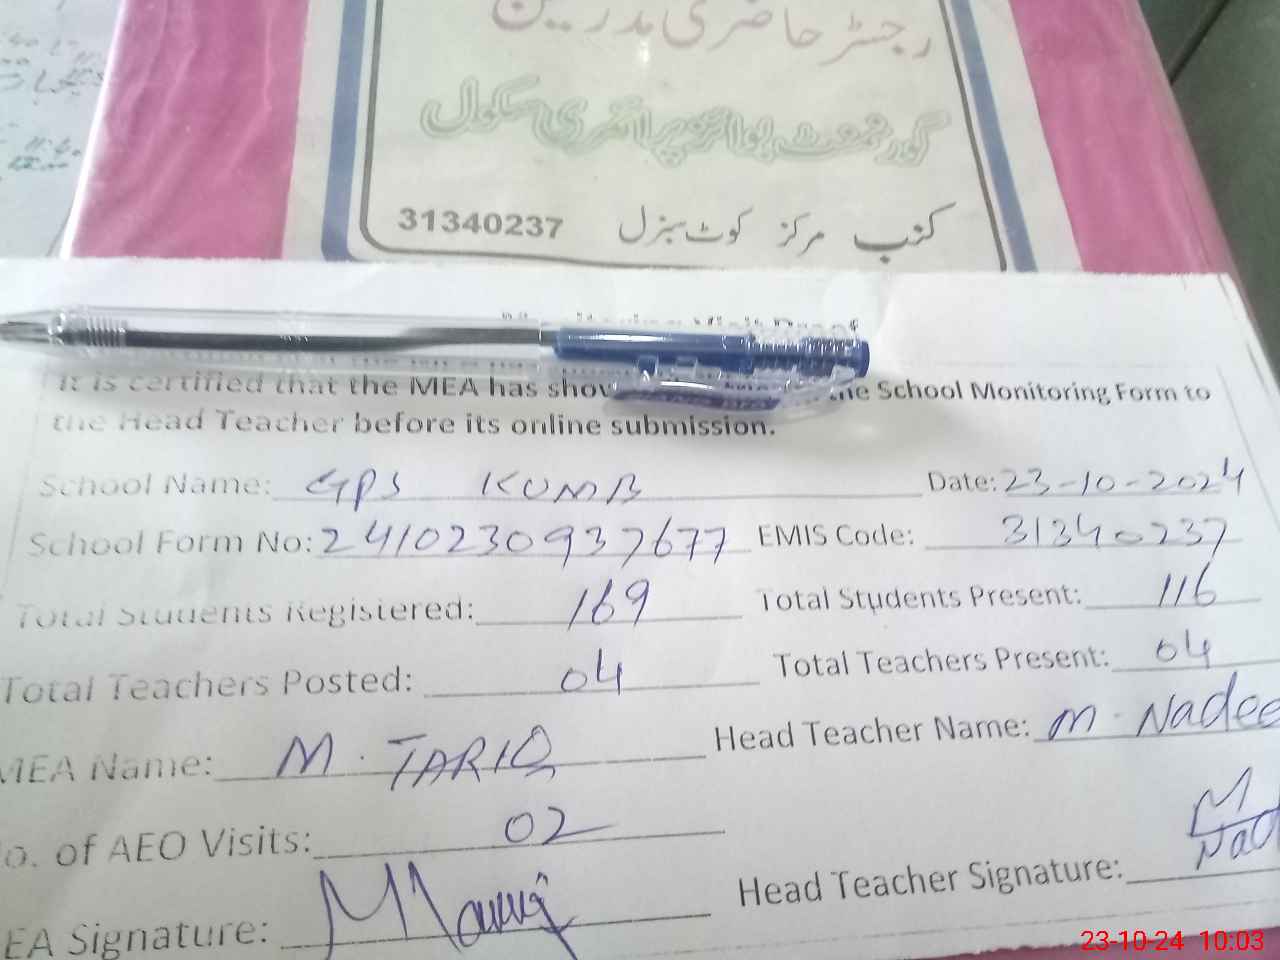 رجسٹر حاضری مدرسین
گورنمنٹ بوائز پرائمری سکول
31340237 کنب مرکز کوٹ سبزل
Visit Proof
It is certified that the MEA has the School Monitoring Form to
the Head Teacher before its online submission.
School Name: GPS KUMB Date: 23-10-2024
School Form No: 2410230937677 EMIS Code: 31340237
Total Students Registered: 169 Total Students Present: 116
Total Teachers Posted: 04 Total Teachers Present: 04
MEA Name: M. TARIQ Head Teacher Name: M. Nadee
o. of AEO Visits: 02
EA Signature: Head Teacher Signature:
23-10-24 10:03